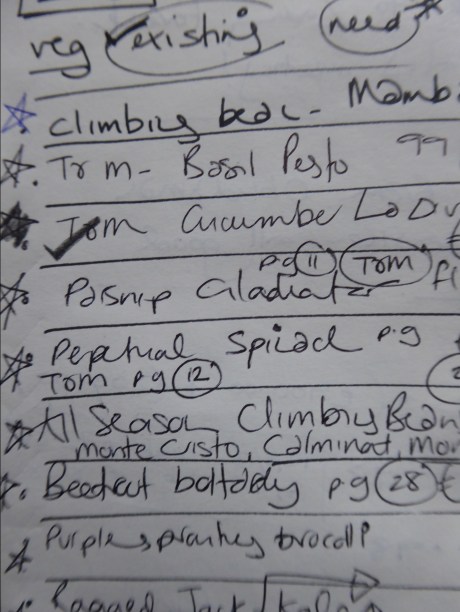 veg existing need
Climbing bean - Mamb
Tom - Basil Pesto 99
Tom Cucumbe La Div
pg 11 Tom
Parsnip Gladiator
Perpetual Spinach pg
Tom pg 12
All Season Climbing Bean
Monte Cristo, Colminat, Mon
Beetroot boltardy pg 28 €
Purple sprouting brocoli
Ragged Jack